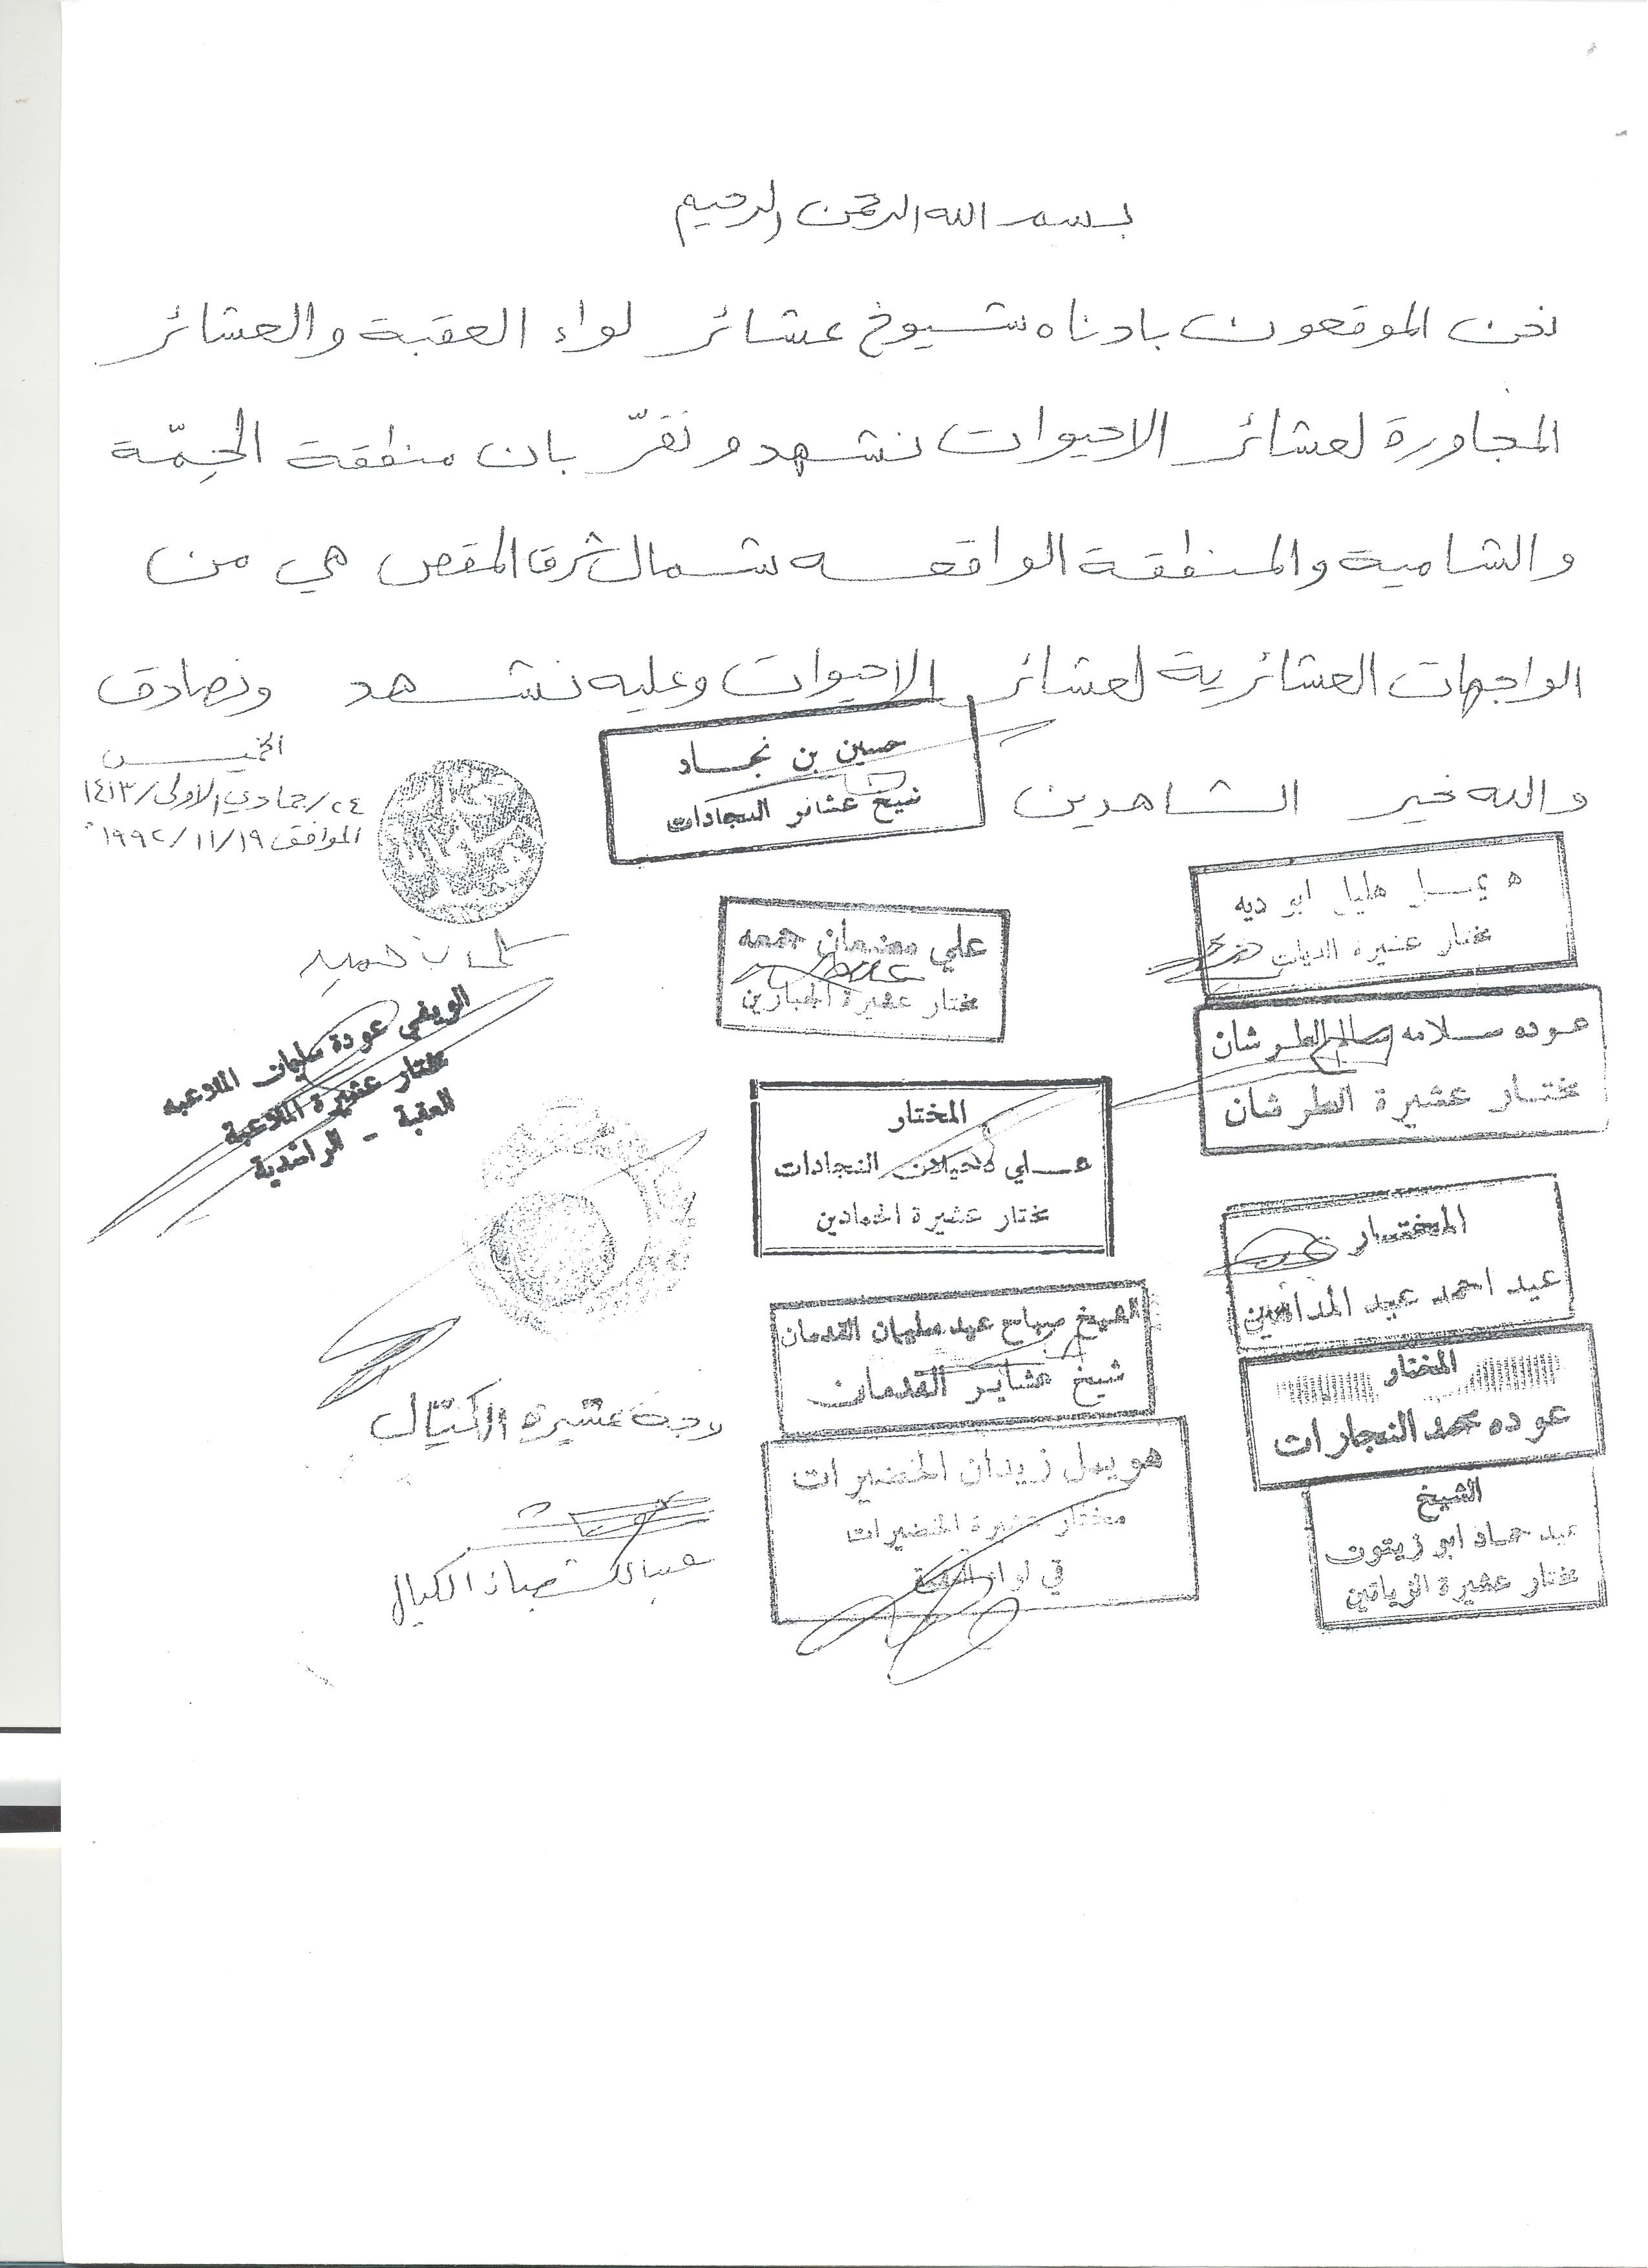 بسم الله الرحمن الرحيم
نحن الموقعون بادناه شيوخ عشائر لواء العقبة والعشائر
المجاورة لعشائر الاحيوات نشهد ونقرّ بان منطقة الخِمّة
والشامية والمنطقة الواقعه شمال شرق المقص هي من
الواجهات العشائرية لعشائر الاحيوات وعليه نشهد ونصادق
والله خير الشاهدين
الخميس
٢٤/جمادي الاولى/١٤١٣
الموافق ١٩/١١/١٩٩٢م
حسين بن نجاد
شيخ عشائر النجادات
هليل ابو ديه
مختار عشيرة
علي جمعه
مختار عشيرة الجبارين
عوده سلامه سالم الطرشان
مختار عشيرة الطرشان
عودة سليمان الملاعبه
مختار عشيرة الملاعبة
العقبة - الراشدية
المختار
علي دخيلان النجادات
مختار عشيرة الحمادين
المختار
عيد احمد عيد
الشيخ صباح عيد سليمان القدمان
شيخ عشاير القدمان
المختار
عوده محمد النجارات
هويمل زيدان الخضيرات
مختار عشيرة الخضيرات
في لواء العقبة
الشيخ
عيد حماد ابو زيتون
مختار عشيرة
عشيرة الكبال